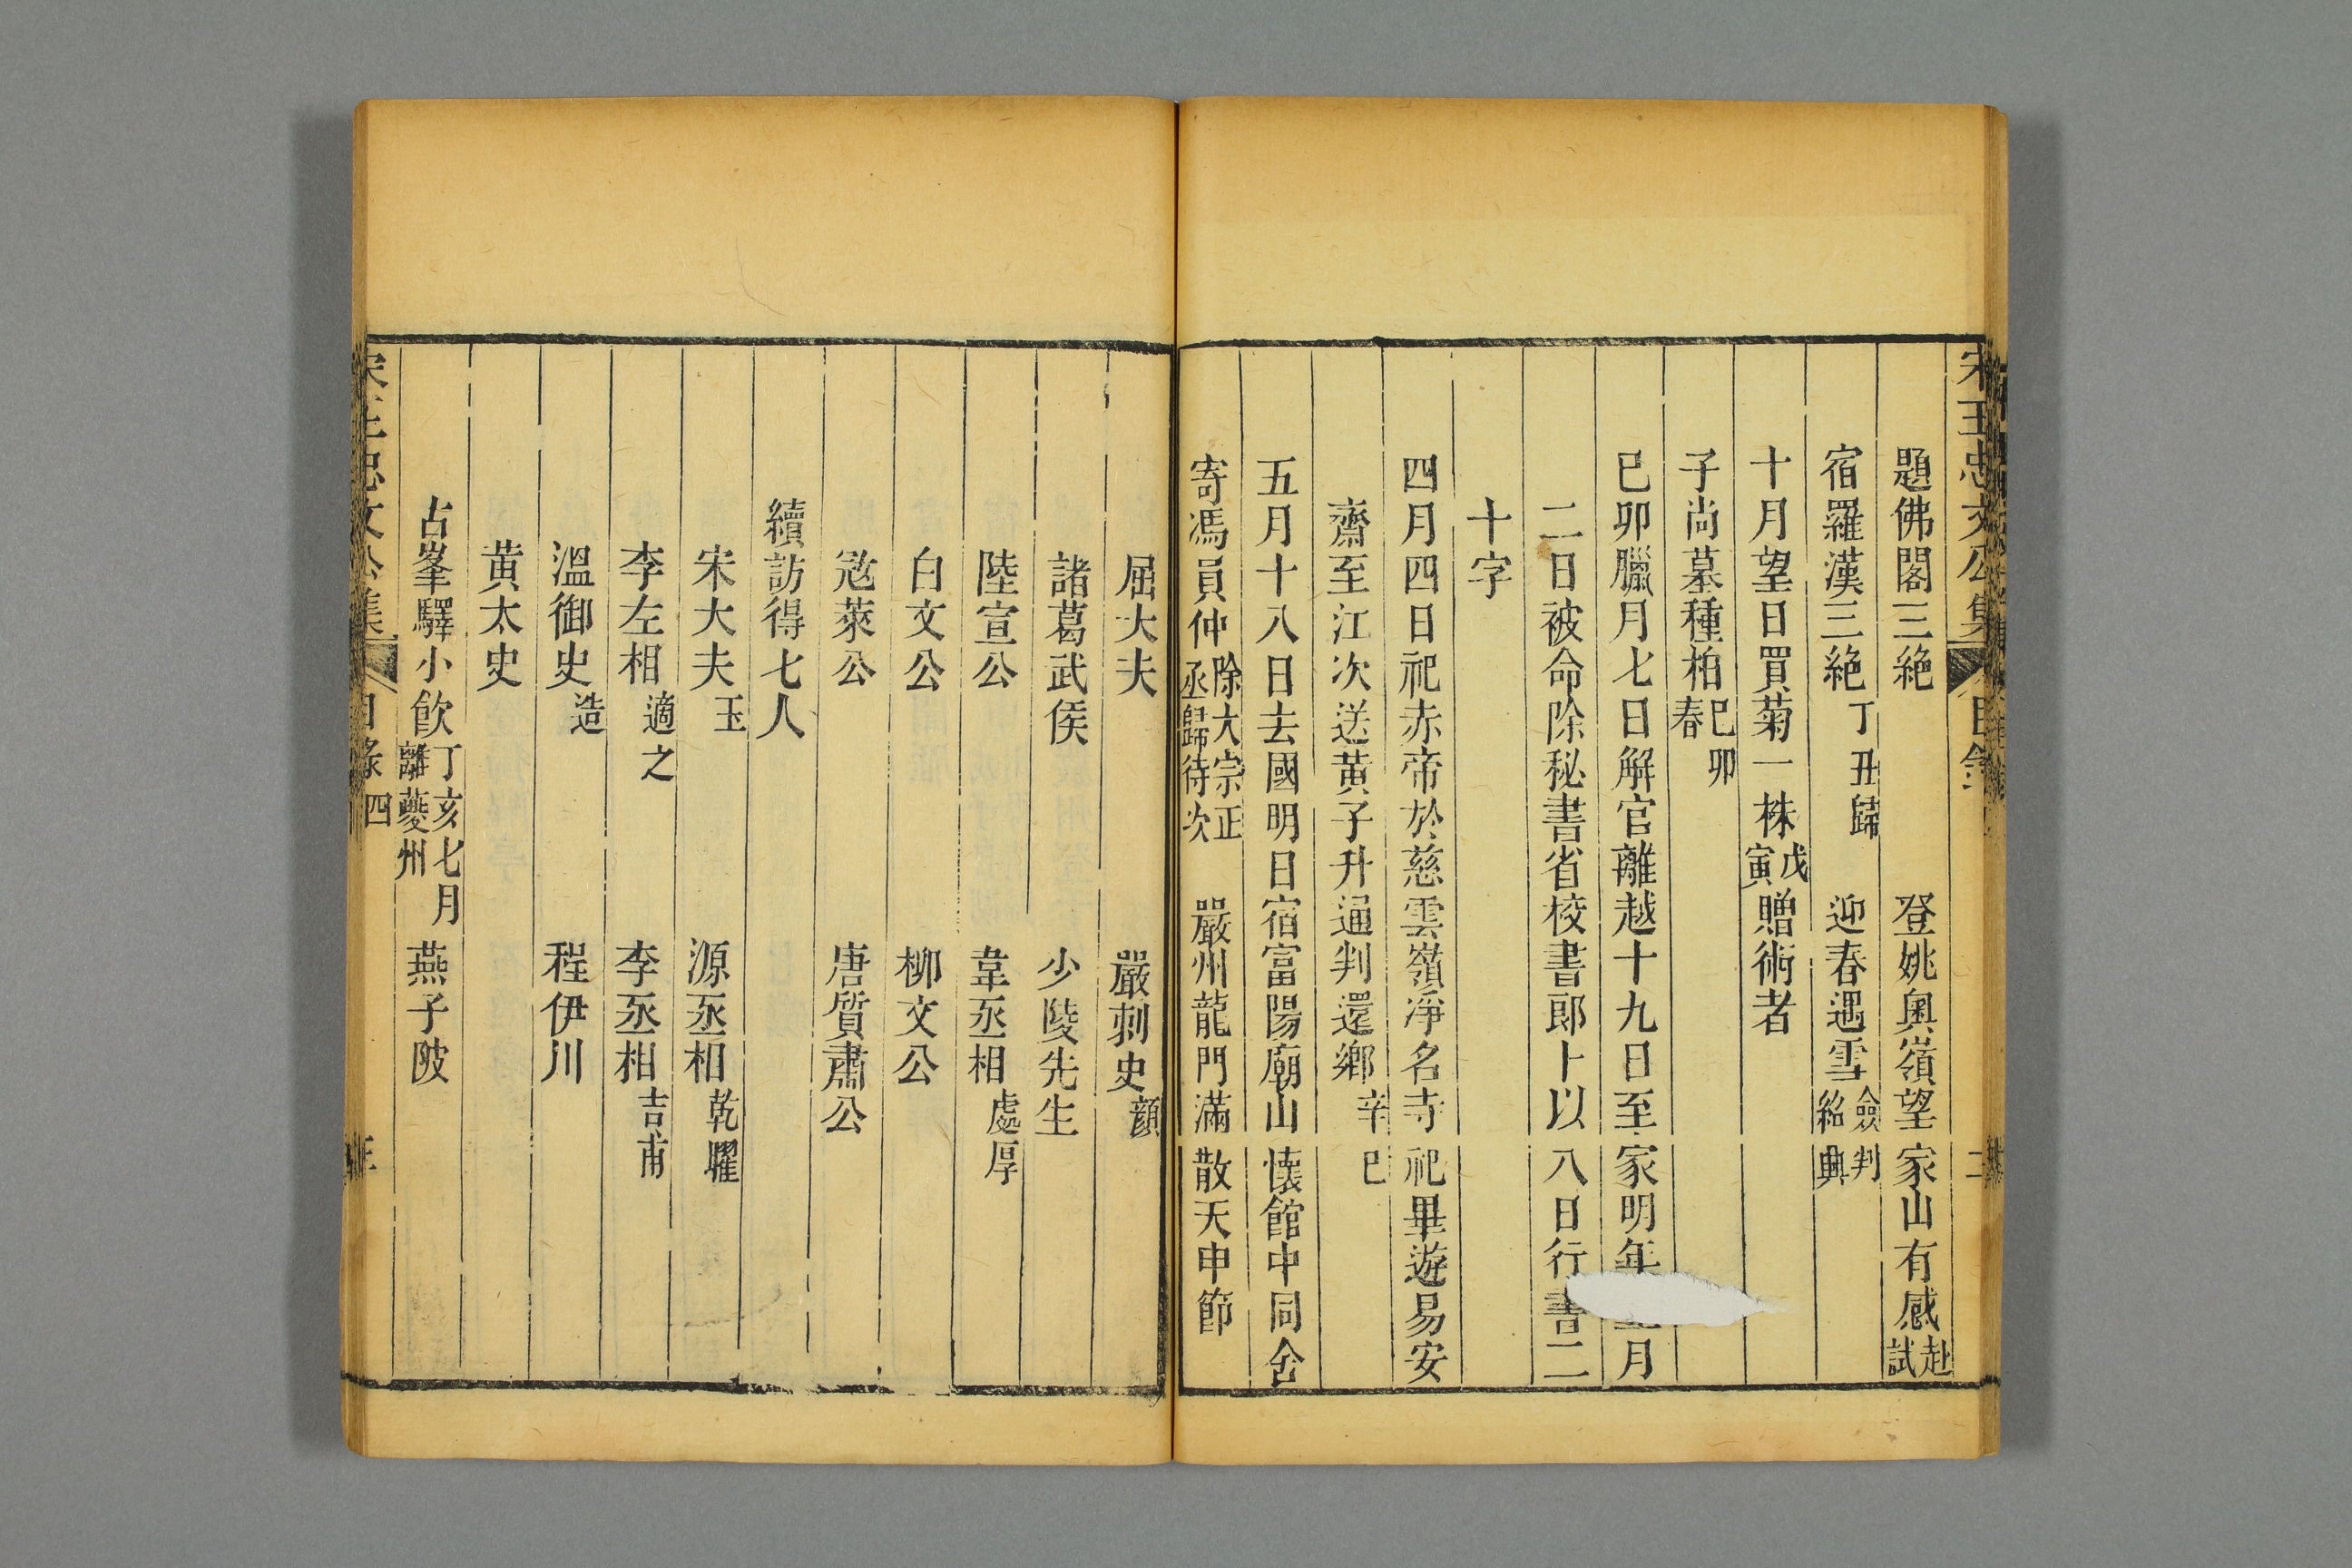 宋王忠文公集 目錄 二
題佛閣三絶 登姚奥嶺望家山有感赴試
宿羅漢三絶丁丑歸 迎春遇雪僉判紹興
十月望日買菊一株戊寅 贈術者
子尚墓種柏己卯春
已卯臘月七日解官離越十九日至家明年 月
二日被命除秘書省校書郎卜以八日行書二
十字
四月四日祀赤帝於慈雲嶺淨名寺祀畢遊易安
齋至江次送黄子升通判還鄉辛巳
五月十八日去國明日宿富陽廟山懐館中同舍
寄馮員仲除大宗正丞歸待次 嚴州龍門滿散天申節
屈大夫 嚴刺史顔
諸葛武侯 少陵先生
陸宣公 韋丞相處厚
白文公 柳文公
寇萊公 唐質肅公
續訪得七人
宋大夫玉 源丞相乾曜
李左相適之 李丞相吉甫
溫御史造 程伊川
黄太史
古峯驛小飲丁亥七月離夔州 燕子陂
文 集 目錄 四